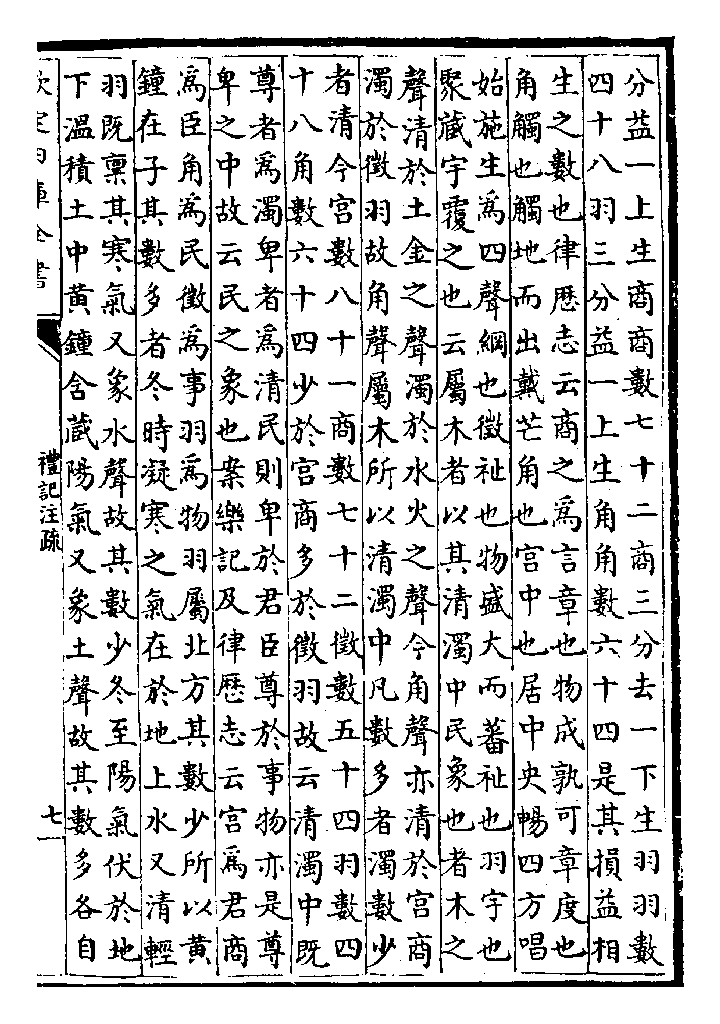 分益一上生商商數七十二商三分去一下生羽羽數
四十八羽三分益一上生角角數六十四是其損益相
生之數也律歴志云商之為言章也物成孰可章度也
角觸也觸地而出戴芒角也宫中也居中央暢四方唱
始施生為四聲綱也徴祉也物盛大而蕃祉也羽宇也
聚蔵宇覆之也云屬木者以其清濁中民象也者木之
聲清於土金之聲濁於水火之聲今角聲亦清於宫商
濁於徴羽故角聲屬木所以清濁中凡數多者濁數少
者清今宫數八十一商數七十二徴數五十四羽數四
十八角數六十四少於宫商多於徴羽故云清濁中既
尊者為濁卑者為清民則卑於君臣尊於事物亦是尊
卑之中故云民之象也案樂記及律歴志云宫為君商
為臣角為民徴為事羽為物羽屬北方其數少所以黄
鐘在子其數多者冬時凝寒之氣在於地上水又清輕
羽既稟其寒氣又象水聲故其數少冬至陽氣伏於地
下溫積土中黄鐘含蔵陽氣又象土聲故其數多各自
欽定四庫全書
禮記注疏
七